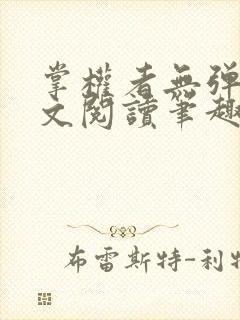 掌權者無彈
文閱讀筆趣
布雷斯特-利特